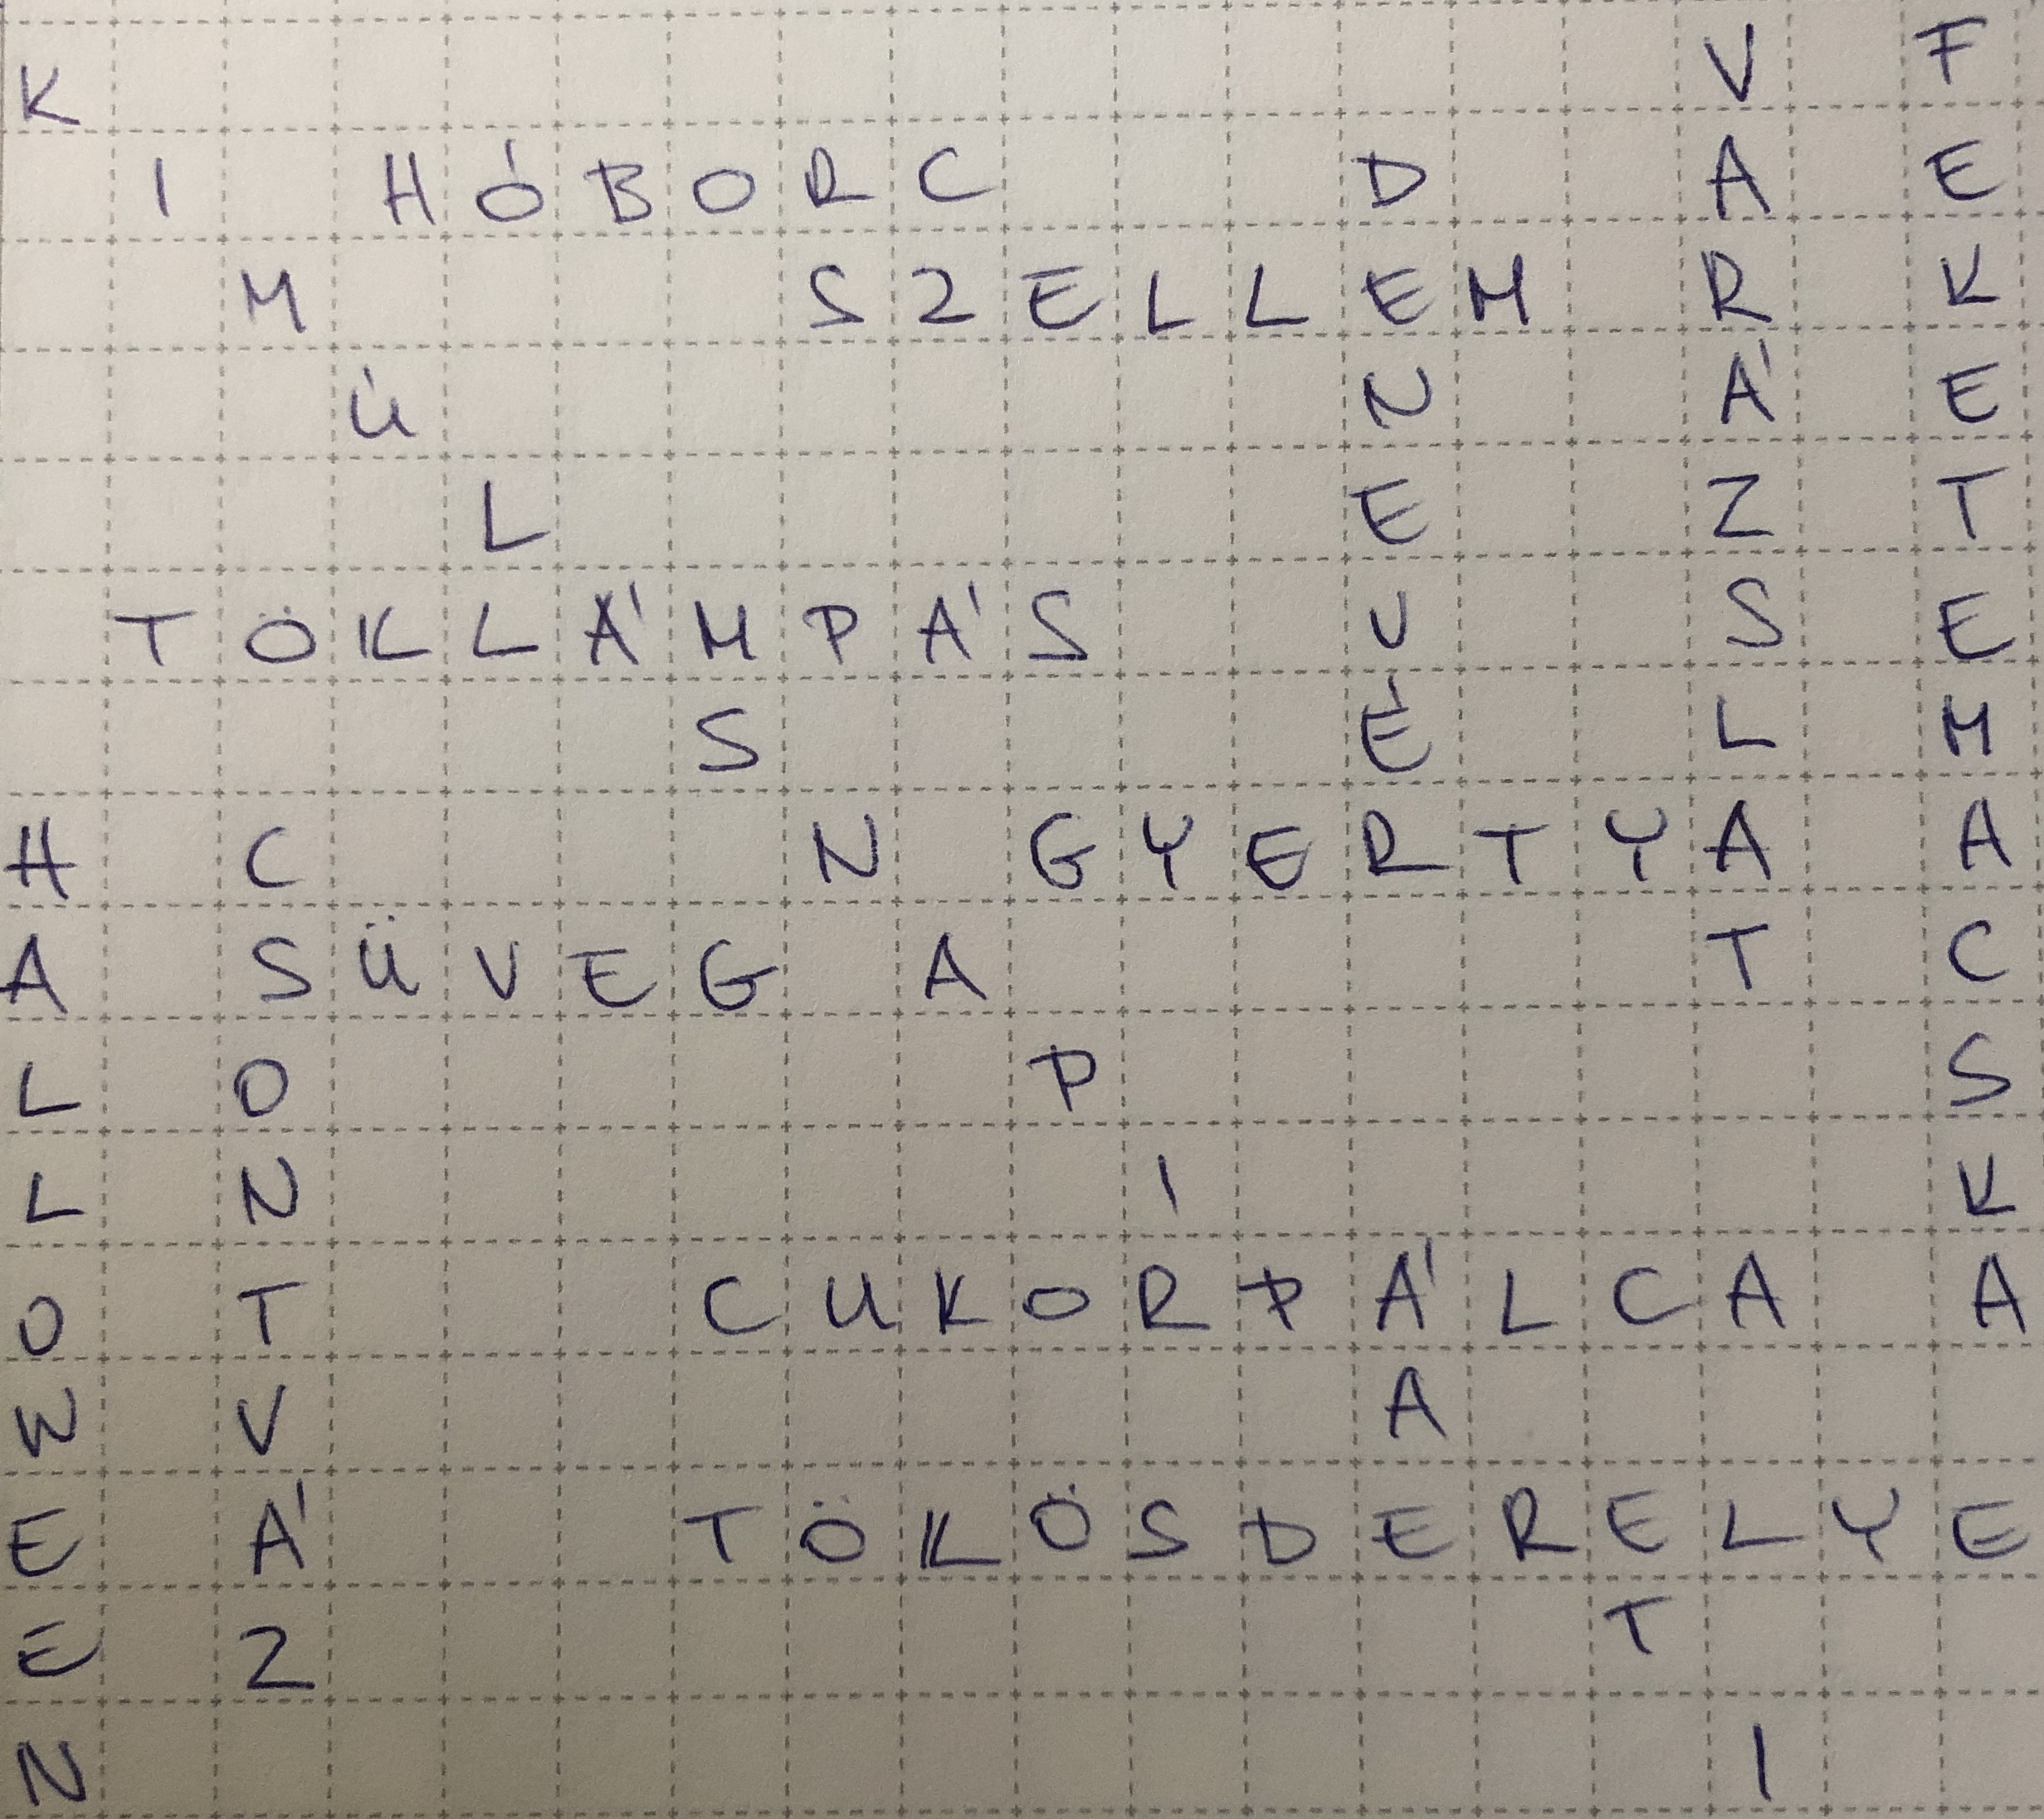 K V F
I H Ó B O R C D A E
M S Z E L L E M R K
Ú N Á E
L E Z T
T Ö K L Á M P Á S U S E
S É L M
H C N G Y E R T Y A A
A S Ü V E G A T C
L O P S
L N I K
O T C U K O R P Á L C A A
W V A
E Á T Ö K Ö S D E R E L Y E
E Z T
N I